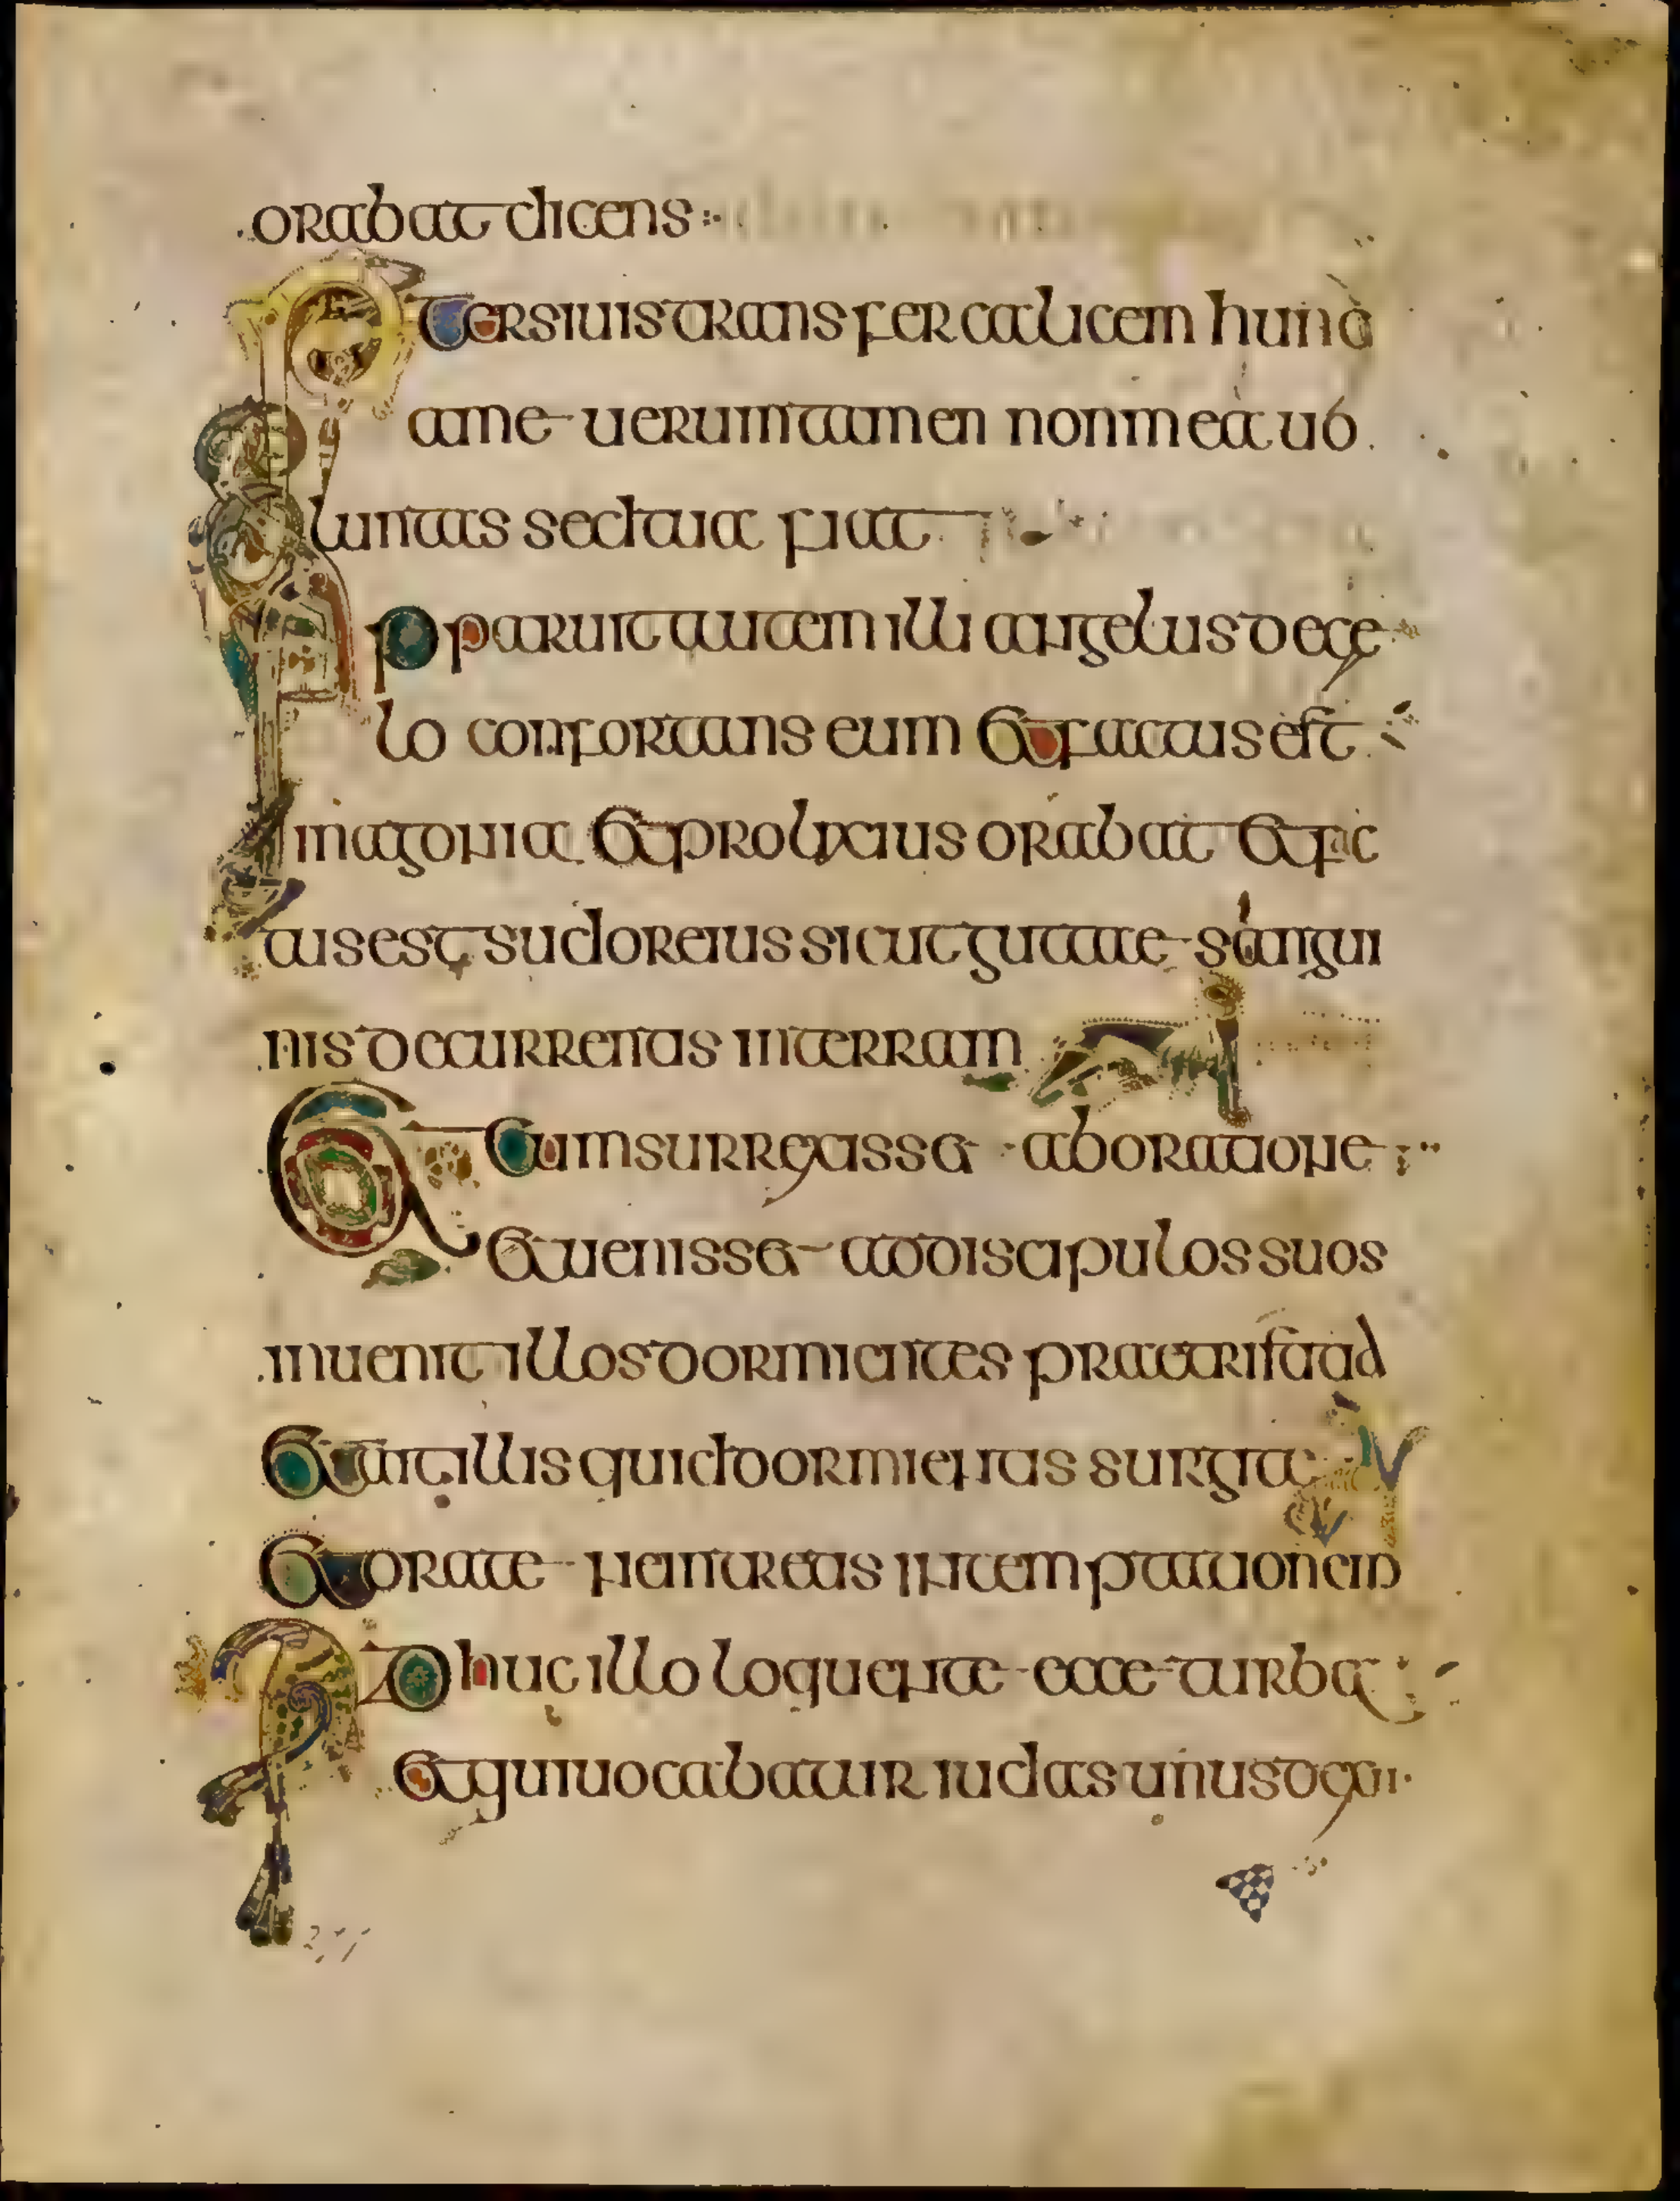 orabat dicens
Pater si uis transfer calicem hunc
a me uerumtamen non mea uo
luntas sed tua fiat
Apparuit autem illi angelus de cę
lo confortans eum et factus est
in agonia et prolixius orabat et fac
tus est sudor eius sicut guttae sangui
nis decurrentis in terram
Et cum surrexisset ab oratione
et uenisset ad discipulos suos
inuenit illos dormientes prae tristitiad
et ait illis quid dormientis surgite
et orate ne intretis in temptationem
Adhuc illo loquente ecce turba
et qui uocabatur iudas unus de xii